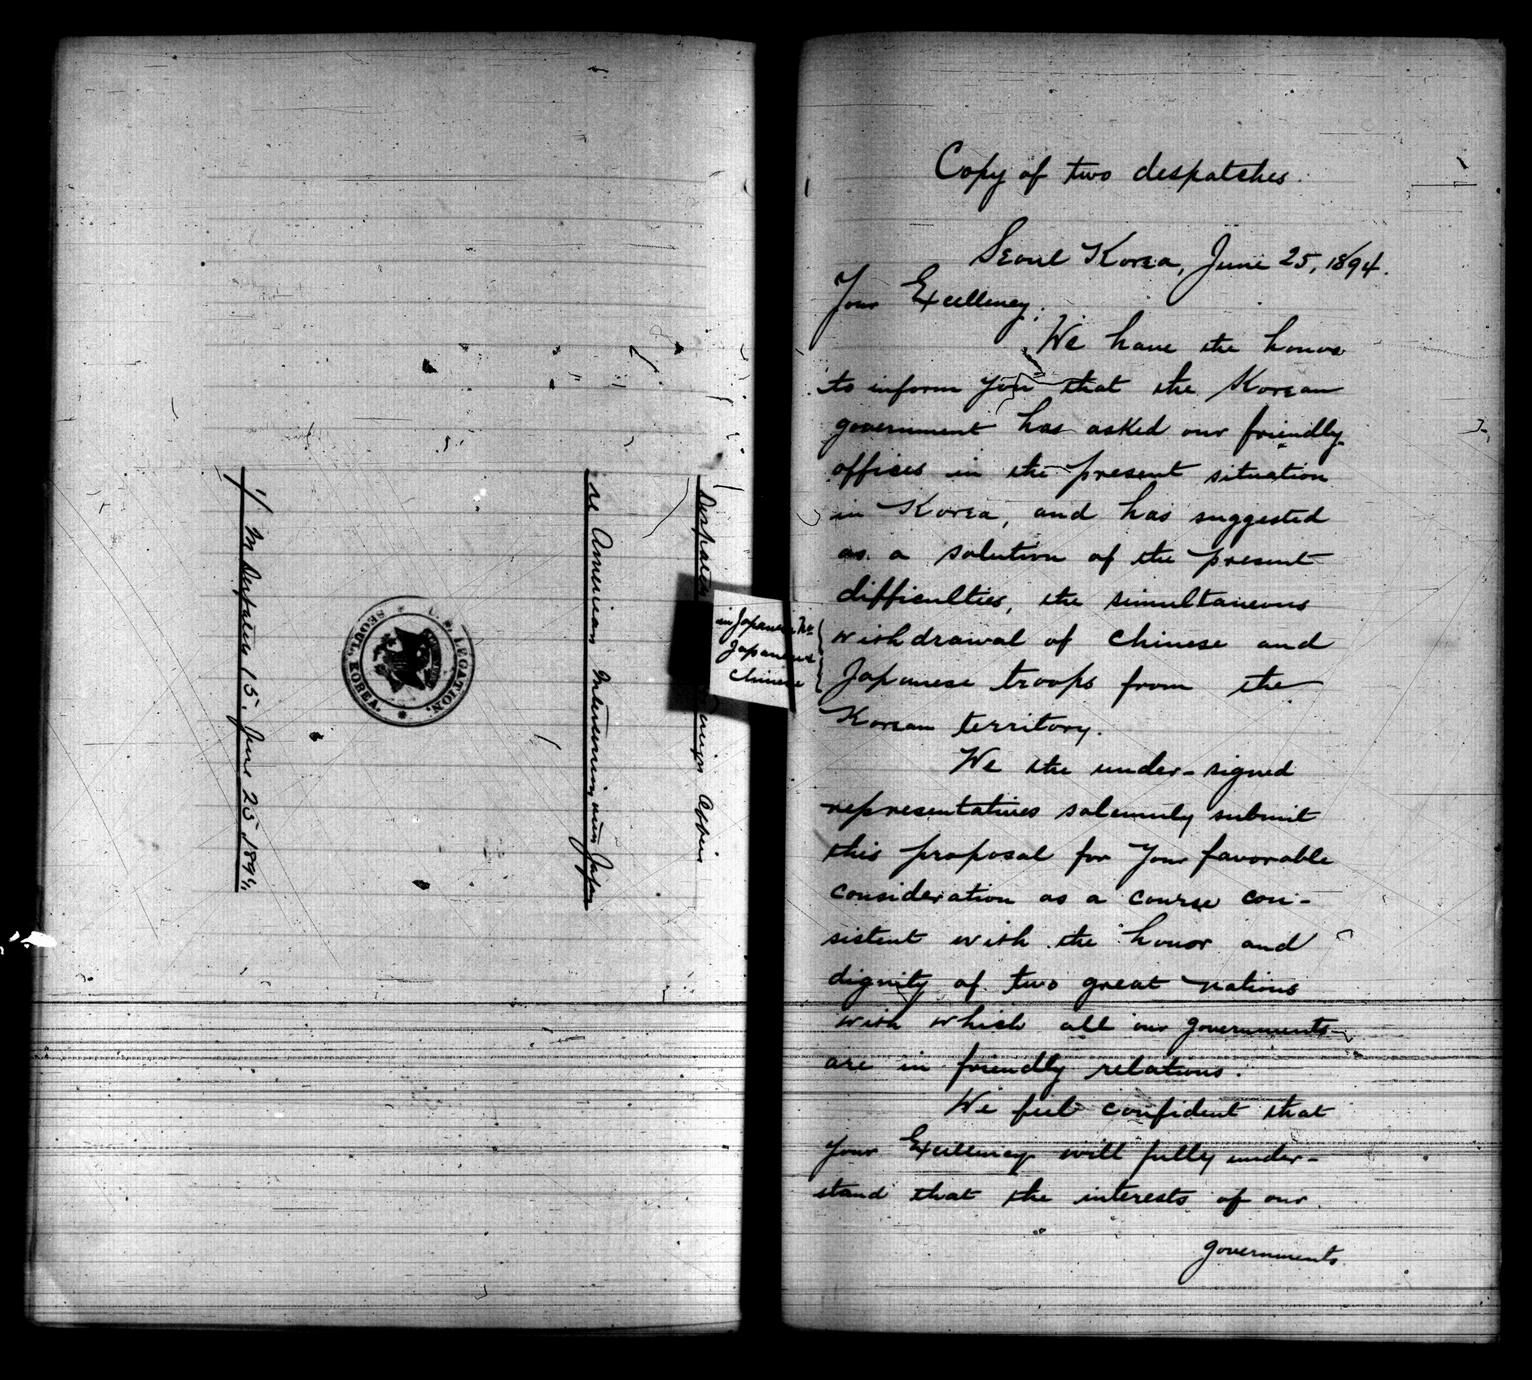 Despatch Foreign Office
re American Intervening with Japan
1/ In Despatch 15, June 25 1894.
U.S. LEGATION.
SEOUL, KOREA.
in Japanese
Japanese
Chinese
Copy of two despatches.
Seoul Korea, June 25, 1894.
Your Excellency:
We have the honor
to inform you that the Korean
government has asked our friendly
offices in the present situation
in Korea, and has suggested
as a solution of the present
difficulties, the simultaneous
withdrawal of Chinese and
Japanese troops from the
Korean territory.
We the under-signed
representatives solemnly submit
this proposal for Your favorable
consideration as a course con-
sistent with the honor and
dignity of two great nations
with which all our governments
are in friendly relations.
We feel confident that
your Excellency will fully under-
stand that the interests of our
governments